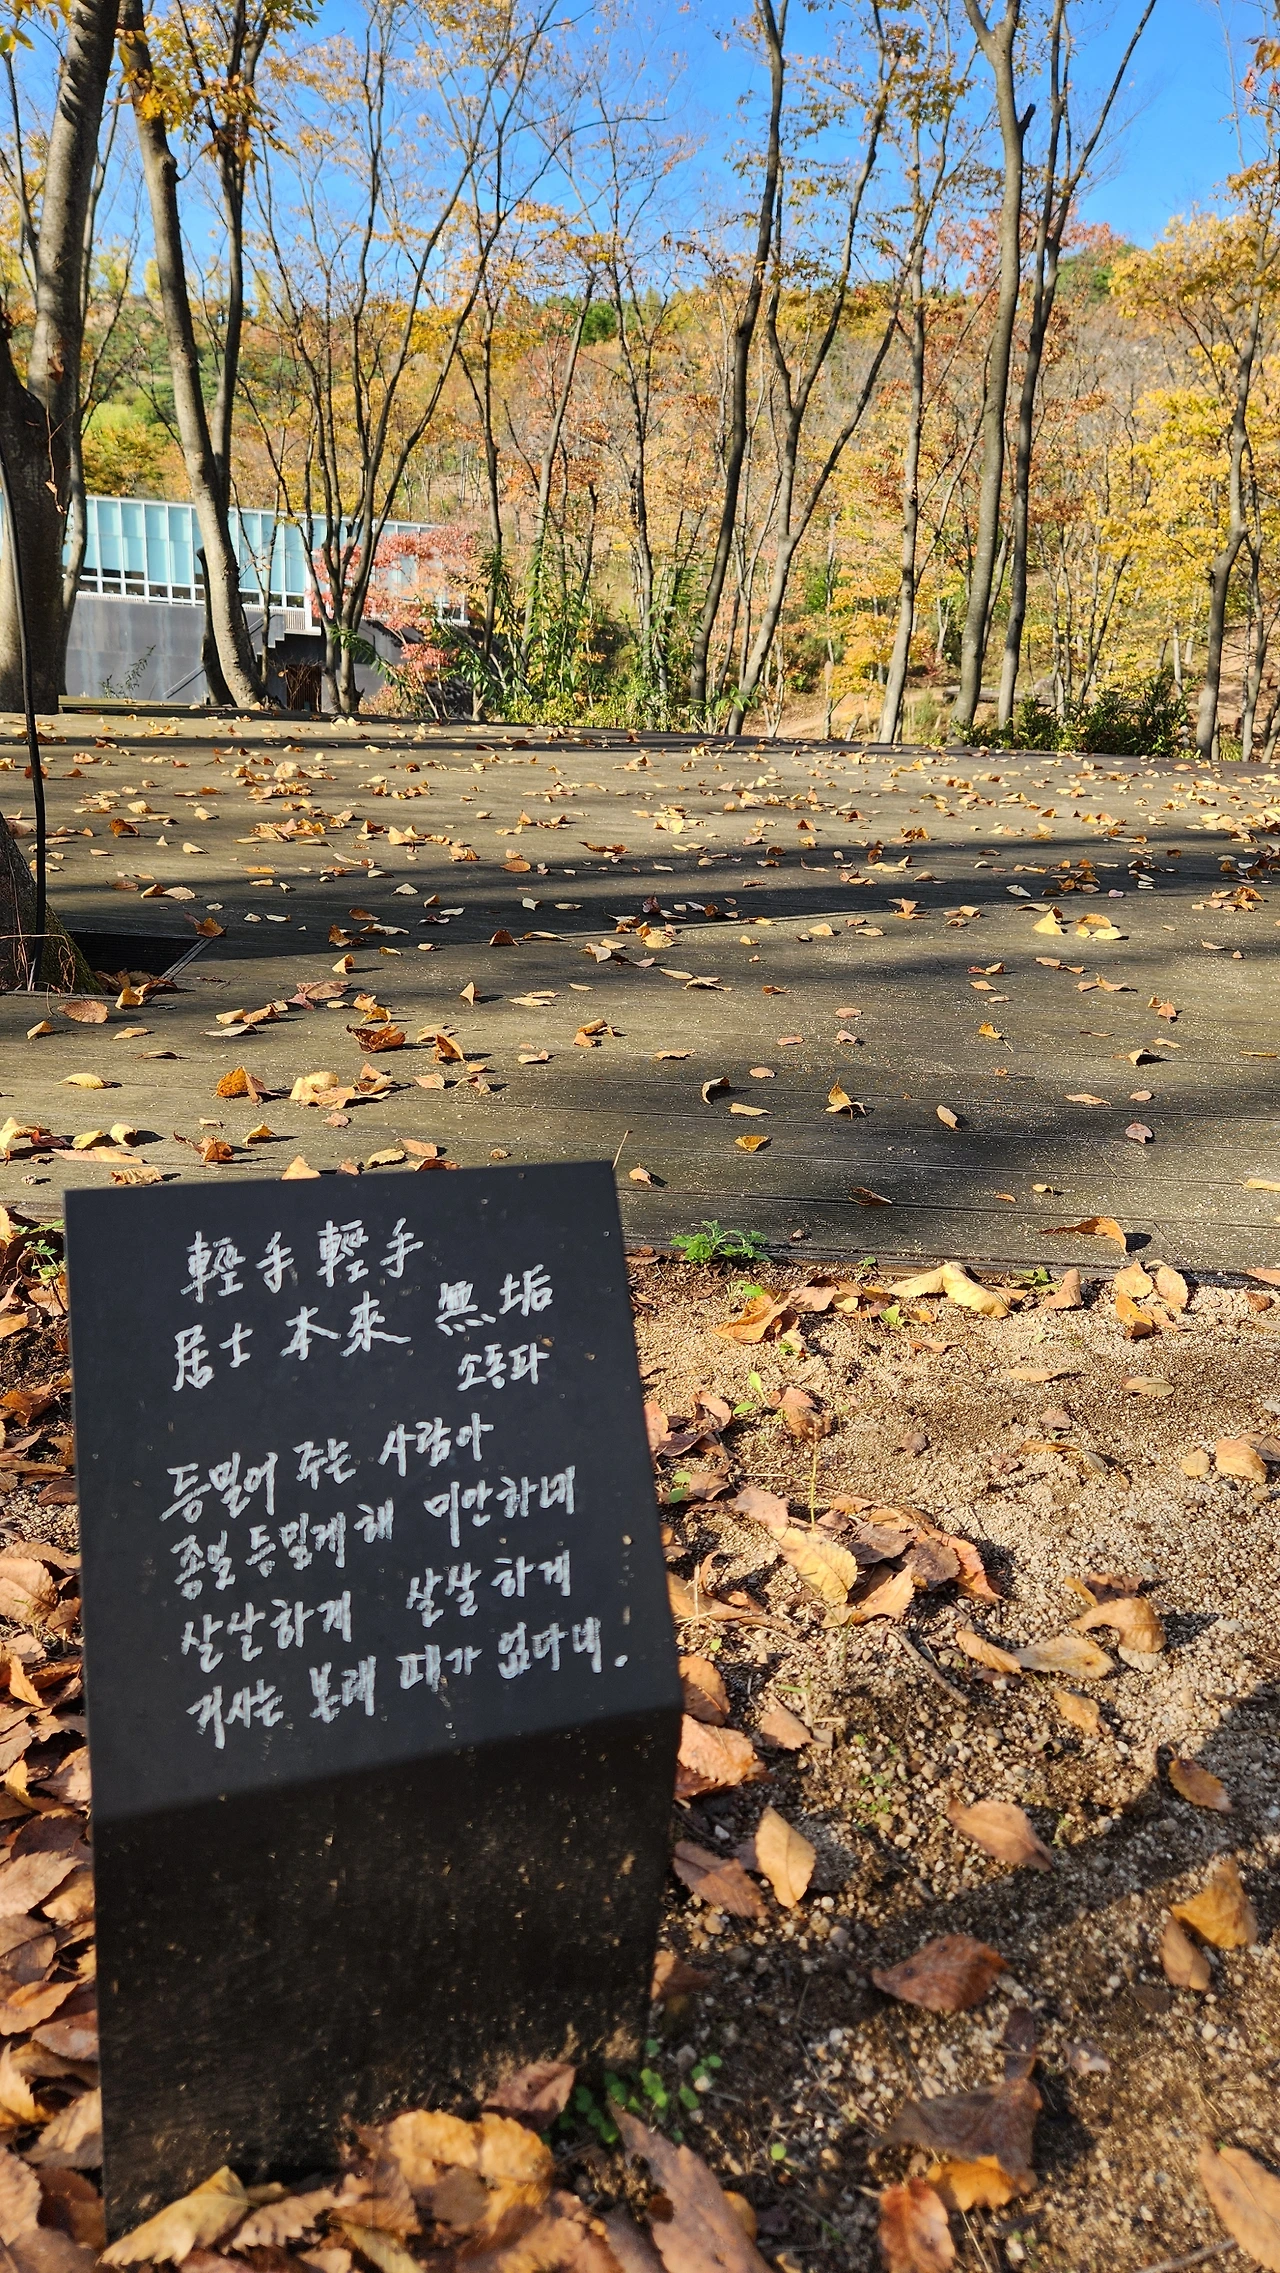 輕手輕手
居士本來 無垢
소동파
등밀어 주는 사람아
종일 등밀게 해 미안하네
살살하게 살살하게
거사는 본래 때가 없다네.